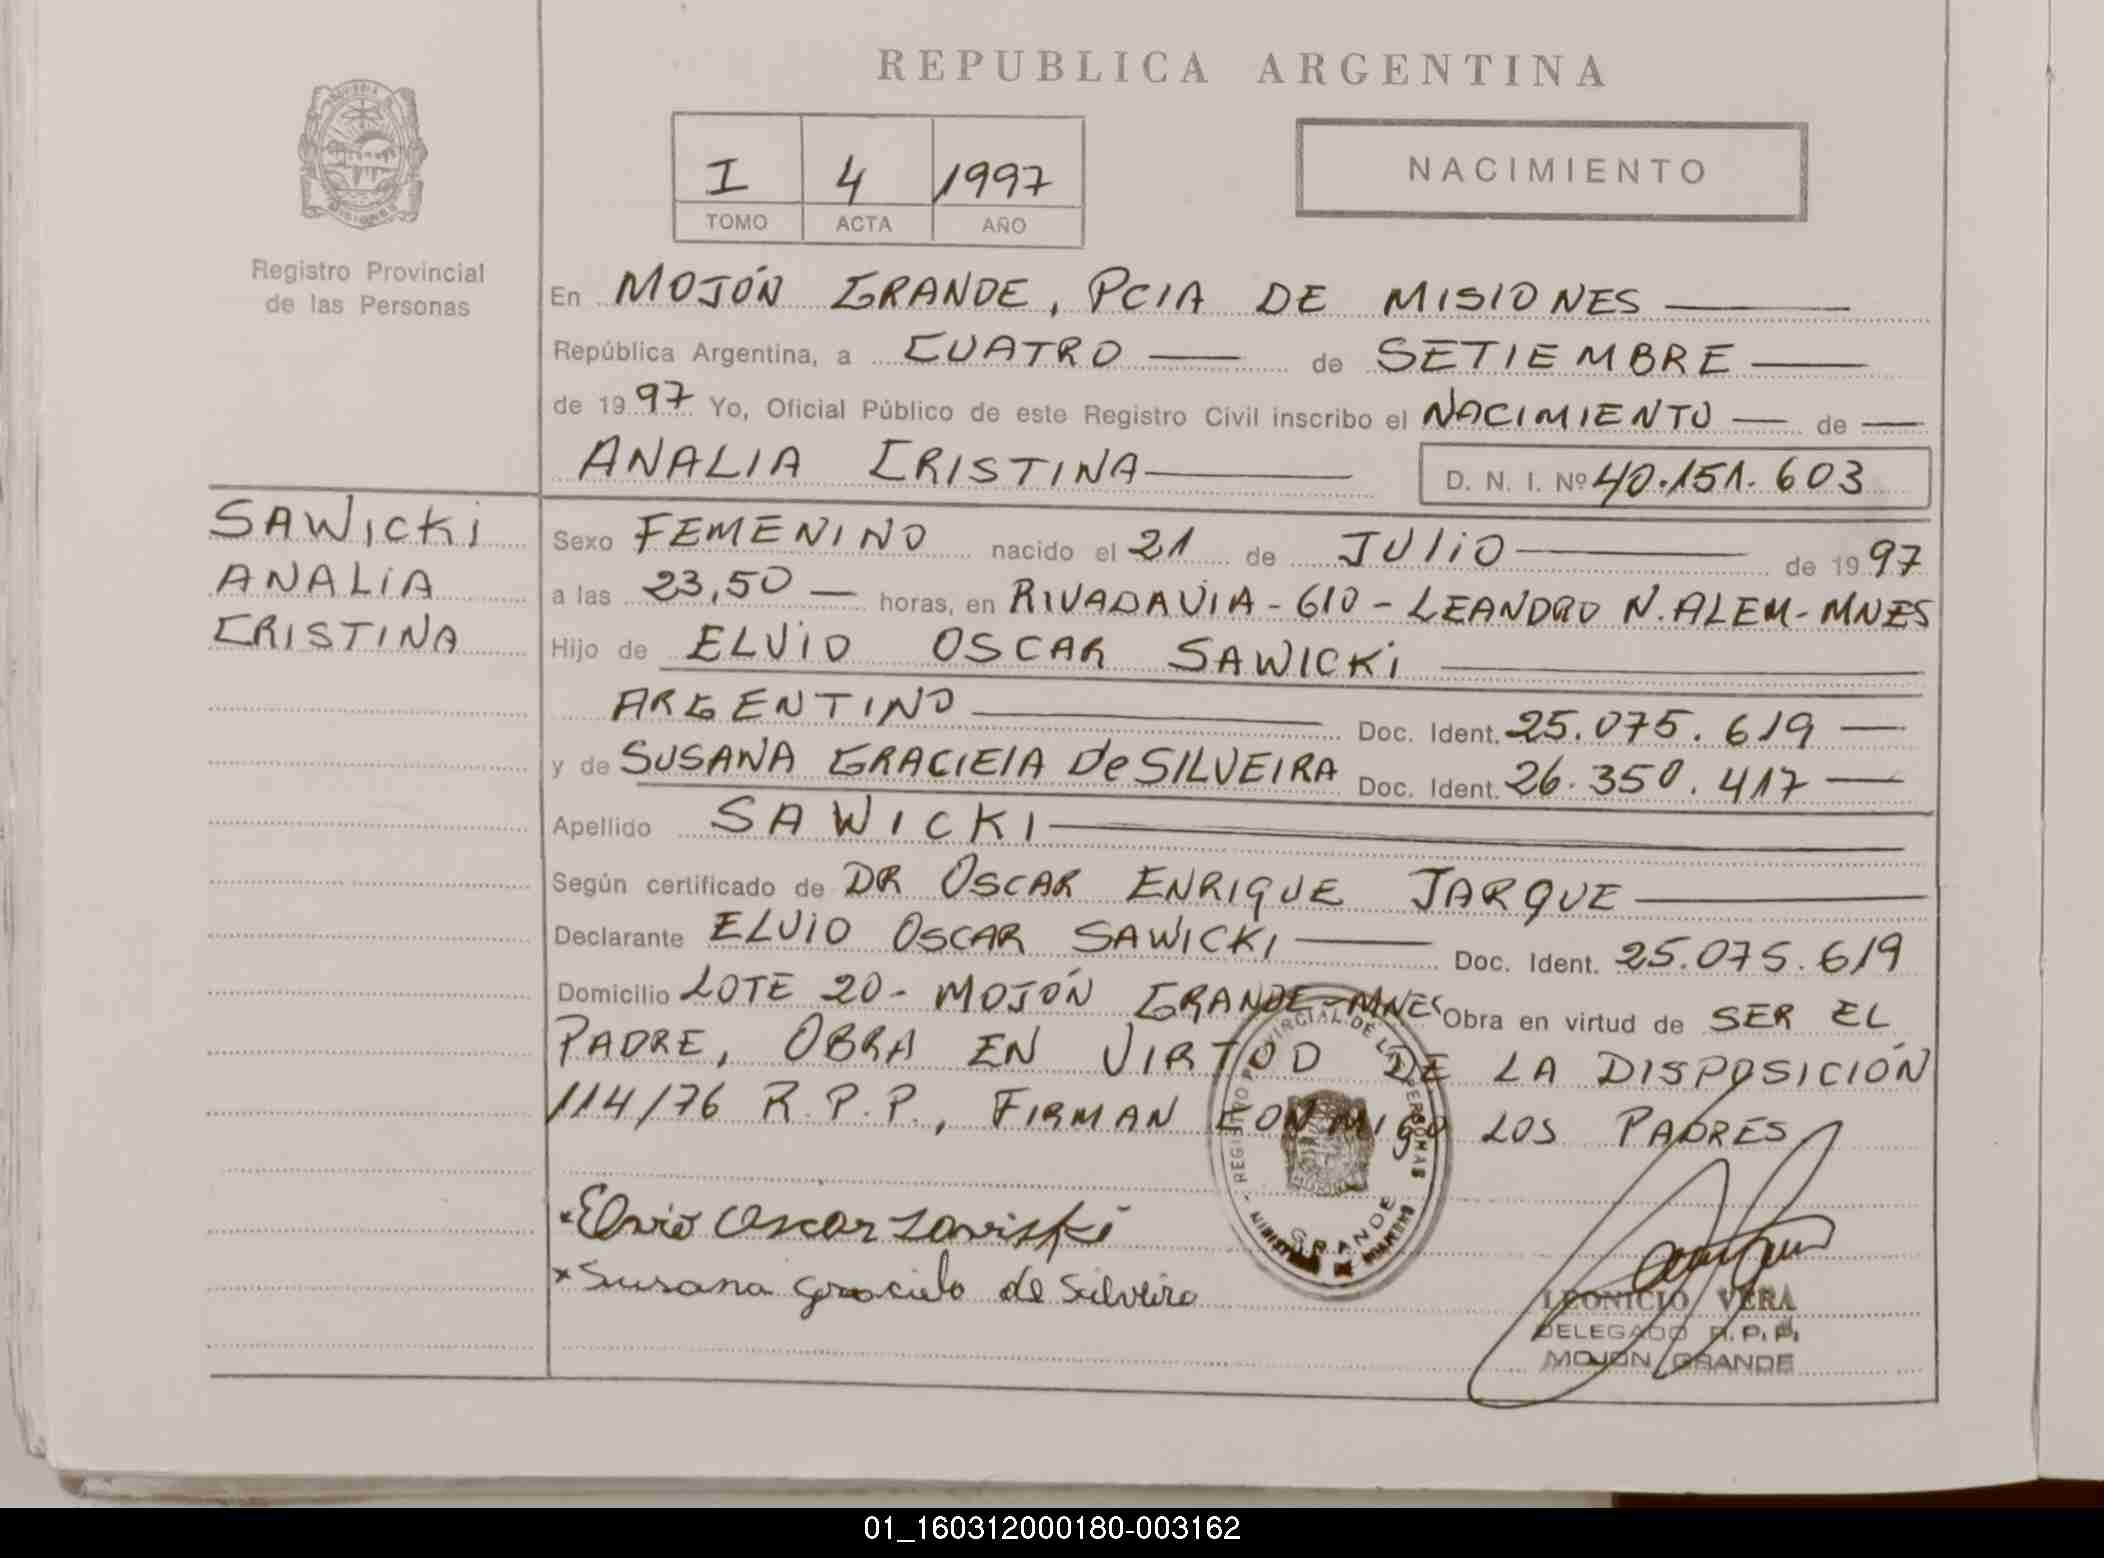 REPUBLICA ARGENTINA
I 4 1997
TOMO ACTA AÑO
NACIMIENTO
MISIONES
Registro Provincial
de las Personas
En MOJÓN GRANDE, PCIA DE MISIONES
República Argentina, a CUATRO de SETIEMBRE
de 1997 Yo, Oficial Público de este Registro Civil inscribo el NACIMIENTO de
ANALIA CRISTINA D. N. I. Nº 40.151.603
SAWICKI
ANALIA
CRISTINA
Sexo FEMENINO nacido el 21 de JULIO de 1997
a las 23,50 horas, en RIVADAVIA - 610 - LEANDRO N. ALEM - MNES
Hijo de ELVIO OSCAR SAWICKI
ARGENTINO Doc. Ident. 25.075.619
y de SUSANA GRACIELA De SILVEIRA Doc. Ident. 26.350.417
Apellido SAWICKI
Según certificado de DR OSCAR ENRIQUE JARQUE
Declarante ELVIO OSCAR SAWICKI Doc. Ident. 25.075.619
Domicilio LOTE 20 - MOJÓN GRANDE - MNES Obra en virtud de SER EL
PADRE, OBRA EN VIRTUD DE LA DISPOSICIÓN
114/76 R.P.P., FIRMAN CONMIGO LOS PADRES
REGISTRO PROVINCIAL DE LAS PERSONAS
GRANDE
Elvio Oscar Saviski
Susana Graciela de Silveira
LEONICIO VERA
DELEGADO R.P.P.
MOJON GRANDE
01_160312000180-003162